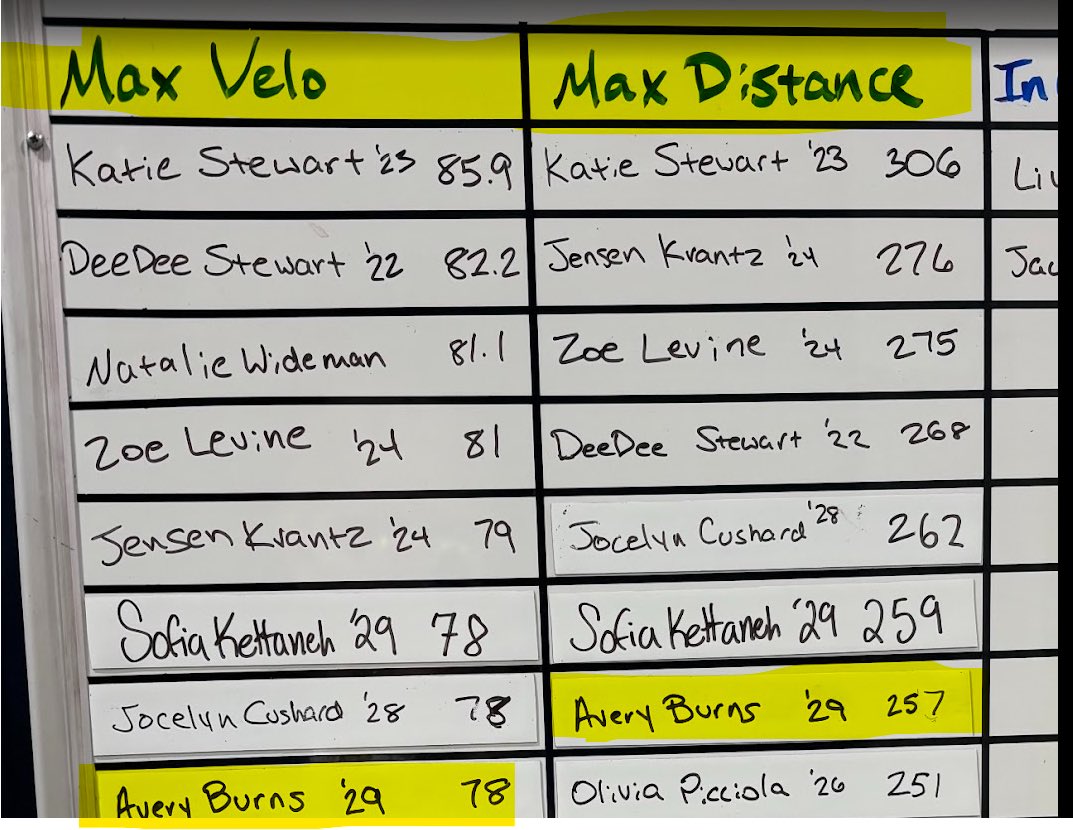 Max Velo Max Distance In
Katie Stewart '23 85.9 Katie Stewart '23 306
DeeDee Stewart '22 82.2 Jensen Krantz '24 276
Natalie Wideman 81.1 Zoe Levine '24 275
Zoe Levine '24 81 DeeDee Stewart '22 268
Jensen Krantz '24 79 Jocelyn Cushard '28 262
Sofia Kettaneh '29 78 Sofia Kettaneh '29 259
Jocelyn Cushard '28 78 Avery Burns '29 257
Avery Burns '29 78 Olivia Picciola '26 251